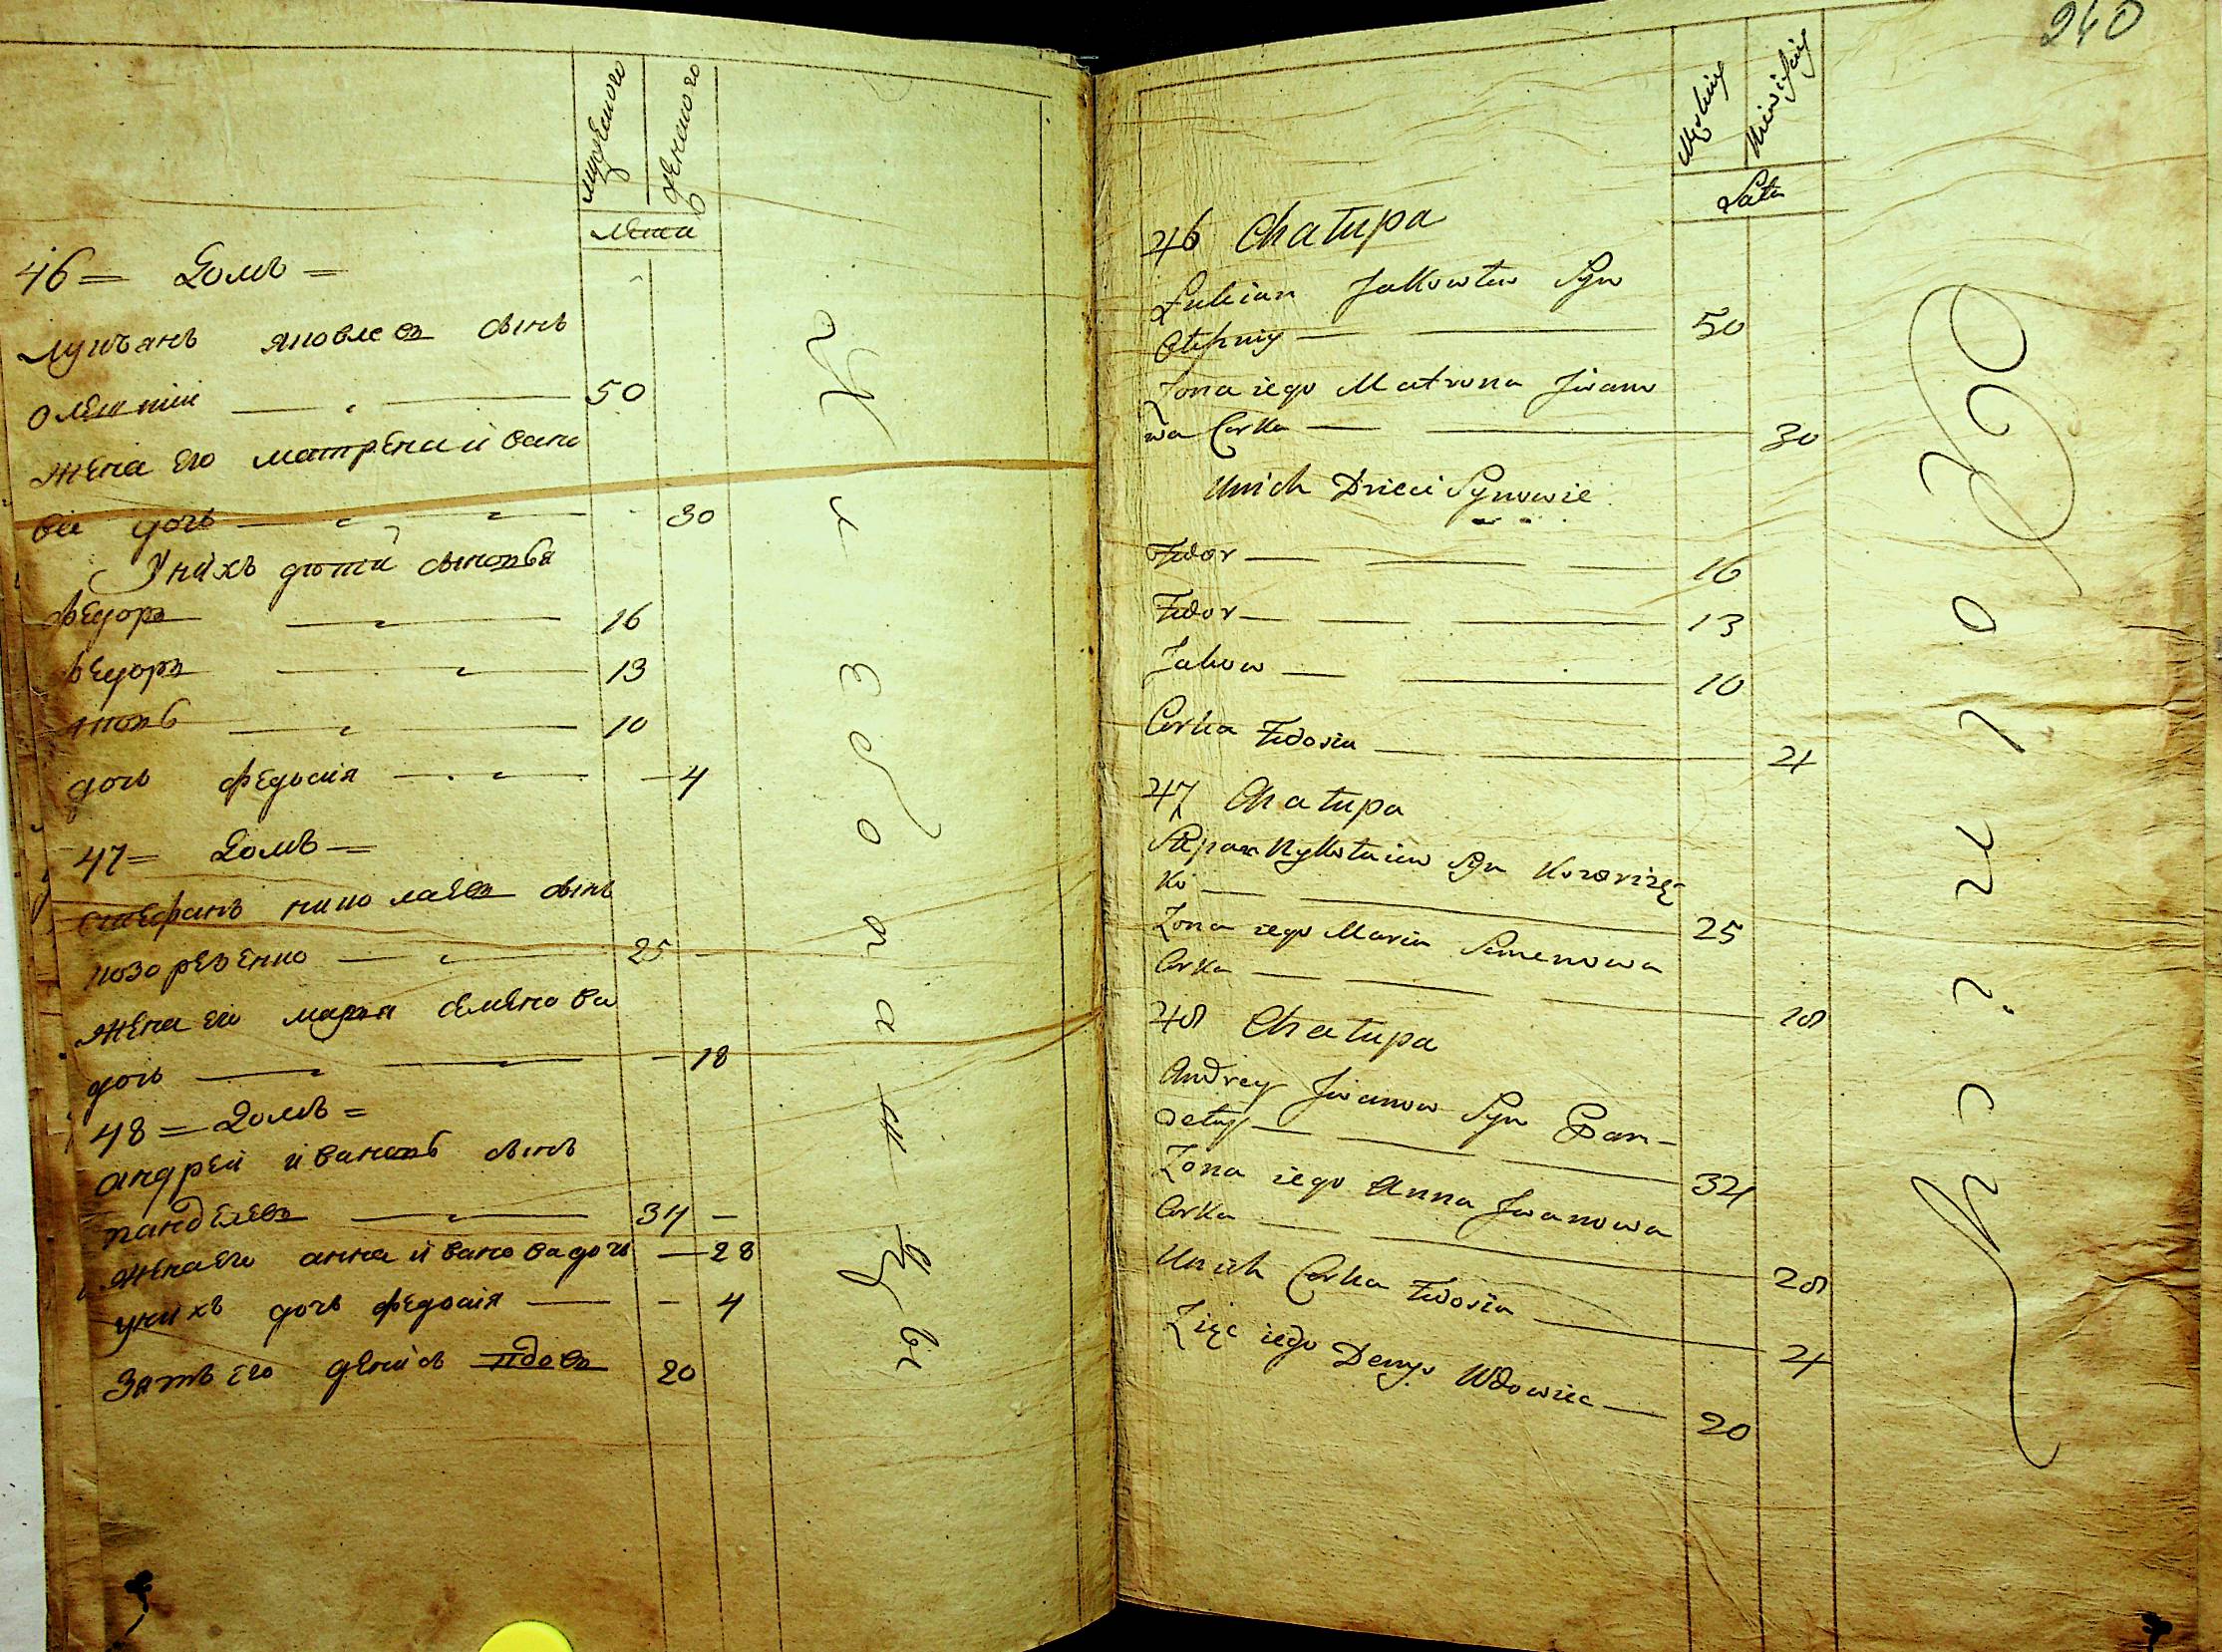 мужескаго
женскаго
лѣта
46 = Домъ =
Лукъянъ яковлевъ сынъ
50
жена его матрена ивано
ва дочь 30
У нихъ дѣти сыновья
федоръ 16
федоръ 13
яковъ 10
дочь федосія 4
47 = Домъ =
Стефанъ николаевъ сынъ
козоревенко 25
жена его марья семенова
дочь 18
48 = Домъ =
андрей ивановъ сынъ
панделевъ 34
жена его анна иванова дочь 28
у нихъ дочь федосія 4
Зять его денисъ вдовъ 20
240
Męskiey
Niewiesciey
Lata
46 Chałupa
Łukian Jakowlew Syn
50
Zona iego Matrona Jwano
wa Corka 30
U nich Dzieci Synowie
Fedor 16
Fedor 13
Jakow 10
Corka Fedosia 4
47 Chałupa
Stepan Nykołaiew Syn Kozorizę
ko 25
Zona iego Maria Semenowa
Corka 18
48 Chałupa
Andrey Jwanow Syn Pan-
deły 34
Zona iego Anna Jwanowa
Corka 28
U nich Corka Fedosia 4
Zięc iego Denys Wdowiec 20